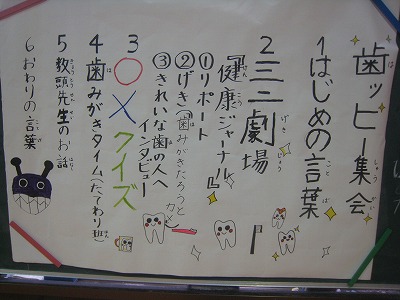 歯ッピー集会
1はじめの言葉
2ミニ劇場
『健康ジャーナル』
①リポート
②げき(歯みがきたろうとカメ)
③きれいな歯の人へ
インタビュー
3〇×クイズ
4歯みがきタイム(たてわり班)
5教頭先生のお話
6おわりの言葉